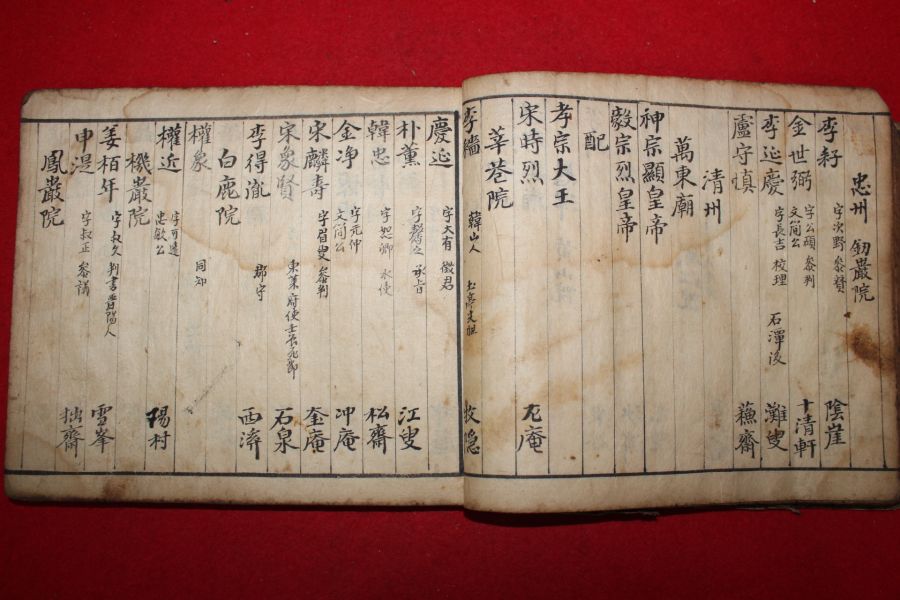 忠州 釰巖院
李耔 字次野 參贊 陰崖
金世弼 字公碩 參判 文簡公 十清軒
李延慶 字長吉 校理 灘叟
盧守愼 蘓齋
石潭後
清州
萬東廟
神宗顯皇帝
毅宗烈皇帝
配
孝宗大王
宋時烈 尤庵
莘巷院
李穡 韓山人 牧隐
慶延 字大有 徵君
朴薰 字馨之 承旨 江叟
韓忠 字恕卿 水使 松齋
金净 字元仲 文簡公 冲庵
宋麟壽 字眉叟 參判 奎庵
宋象賢 東萊府使壬辰死節 石泉
李得胤 郡守 西溪
白鹿院
權象 同知
權近 字可遠 忠 公 陽村
機巖院
姜栢年 字叔久 判書晋陽人 雪峯
申湜 字叔正 參議 拙齋
鳳巖院